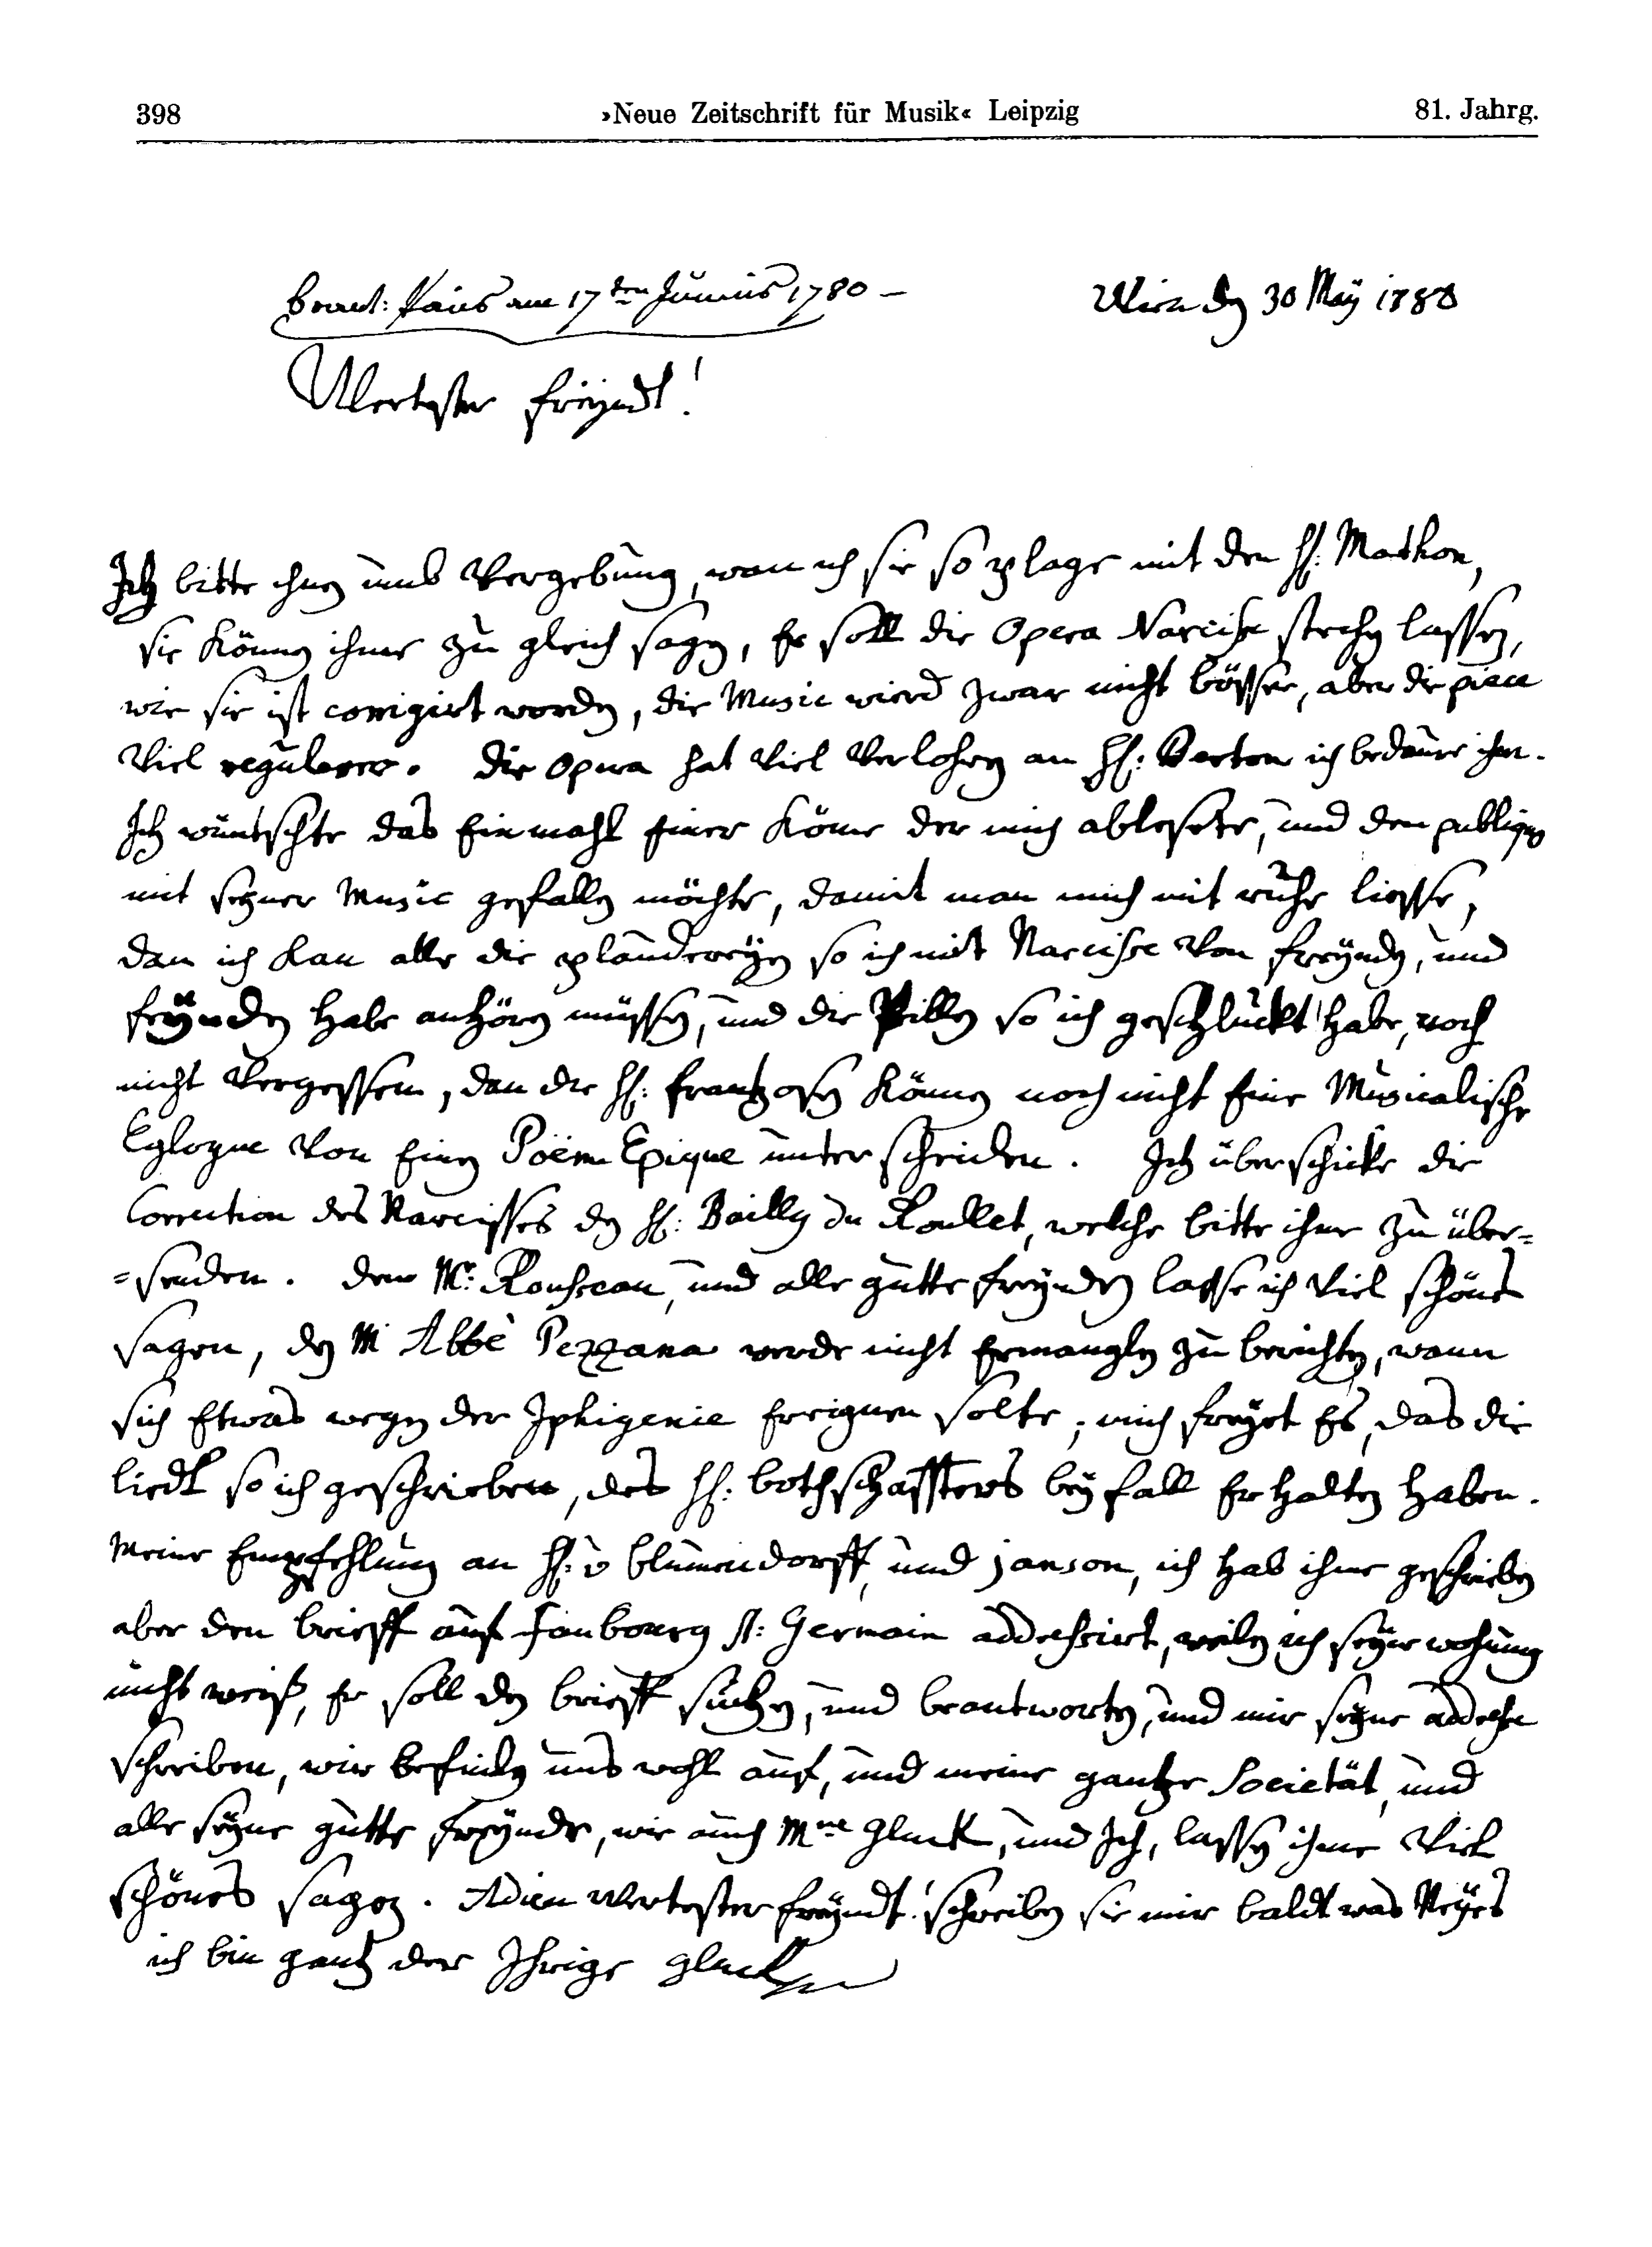 398 »Neue Zeitschrift für Musik« Leipzig 81. Jahrg.
beant: Paris am 17ten Junius 1780 –
Wien den 30 May 1780
Wertester freyndt!
Ich bitte ihnen umb Vergebung, wan ich sie so plage mit den H: Mathon,
sie können ihme zu gleich sagen, Er soll die Opera Narcisse stechen lassen,
wie sie ist corrigirt worden, die Music wierd zwar nicht bösser, aber die piece
Viel regularer. die Opera hat Viel Verlohren an H: Berton ich bedaure ihn.
Ich wüntschte das Einmahl Einer Köme der mich ablesete, und den publiquen
mit seyner Music gefallen möchte, damit man mich mit ruhe liesse,
dan ich kan alle die plaudereyen so ich mit Narcisse Von freynden, und
feynden habe anhören müssen, und die Pillen so ich geschluckt habe, noch
nicht Vergessen, dan die H: frantzosen Können noch nicht Eine Musicalische
Eglogue Von Einen Poëme Epique unterscheiden. Ich überschicke die
Correction des Narcisses den H: Bailly du Roullet, welche bitte ihme zu über=
=senden. dem Mr: Rousseau, und alle gutte freynden lasse ich Viel schönes
sagen, den M Abbè Pezzana werde nicht Ermanglen zu berichten, wann
sich Etwas wegen der Iphigenie Ereignen solte, mich freyet Es, das die
liedl so ich geschrieben, des H: bothschaffters beyfall Erhalten haben.
Meine Empfehlung an H: v blumendorff, und janson, ich hab ihme geschrieben
aber den brieff auf Faubourg st: Germain addressirt, weilen ich seyne wohnung
nicht weiß, Er soll den brieff suchen, und beantworten, und mir seyne addresse
schreiben, wir befinden uns wohl auf, und meine gantze Societät, und
alle seyne gutte freynde, wie auch Mme Gluck, und Ich, lassen ihme Viel
schönes sagen. Adieu Wertester freyndt! schreiben sie mir baldt was Neyes
ich bin gantz der Ihrige Gluck